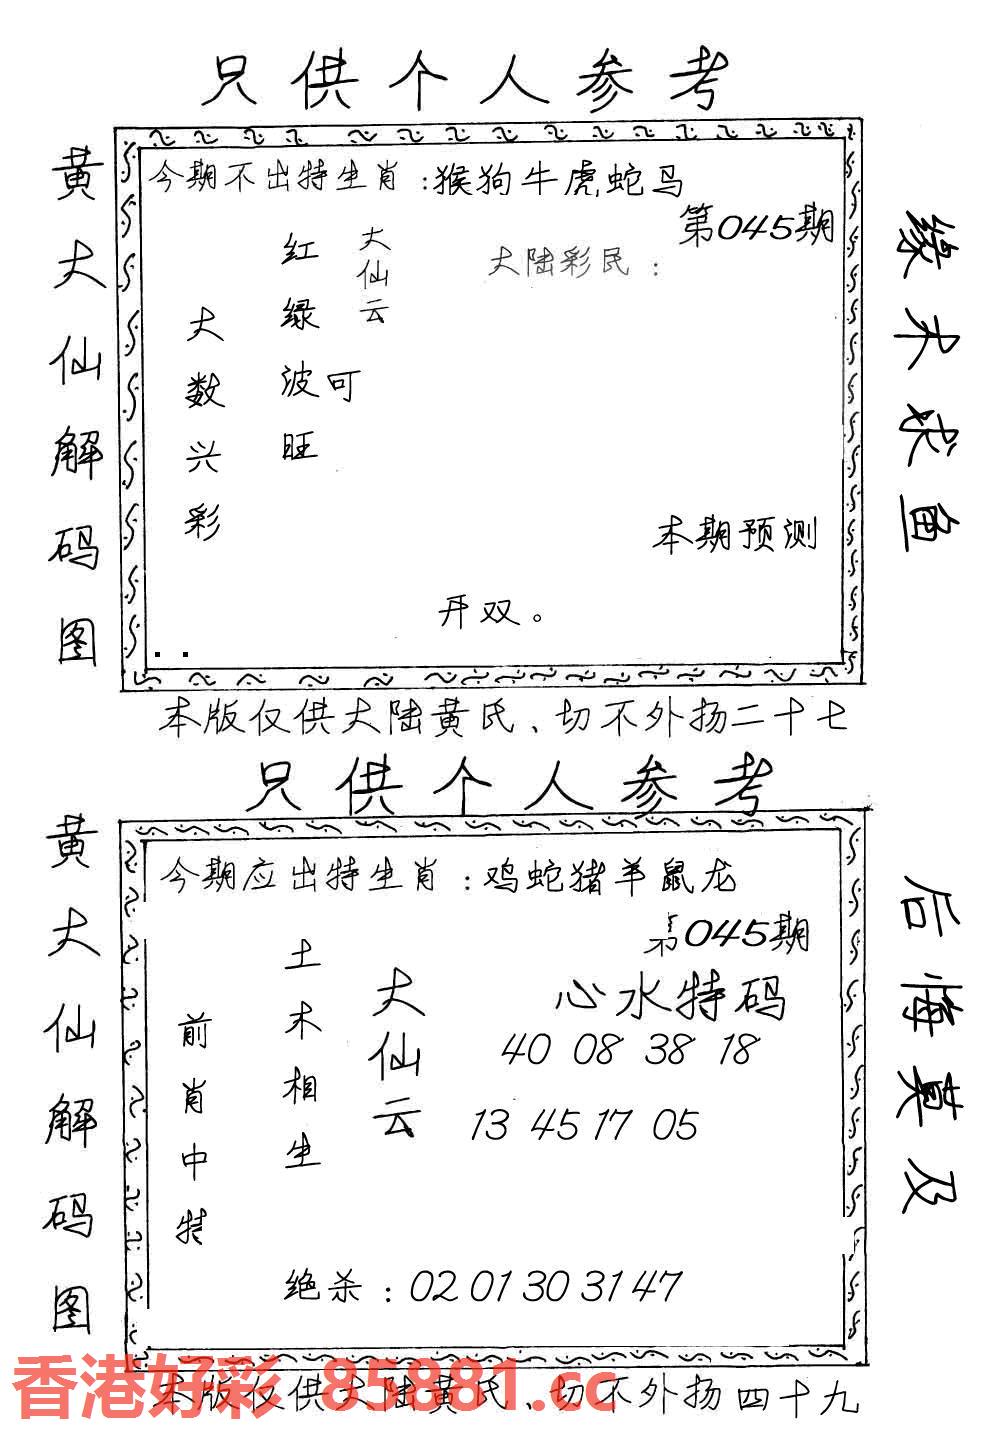 只供个人参考
黄大仙解码图
今期不出特生肖:猴狗牛虎蛇马
第045期
大陆彩民:
大仙云
红绿波可旺
大数兴彩
本期预测
开双。
缘木求鱼
本版仅供大陆黄氏、切不外扬二十七
只供个人参考
黄大仙解码图
今期应出特生肖:鸡蛇猪羊鼠龙
第045期
心水特码
大仙云
土木相生
前肖中特
40 08 38 18
13 45 17 05
绝杀:02 01 30 31 47
后悔莫及
香港好彩 85881.cc
本版仅供大陆黄氏、切不外扬四十九